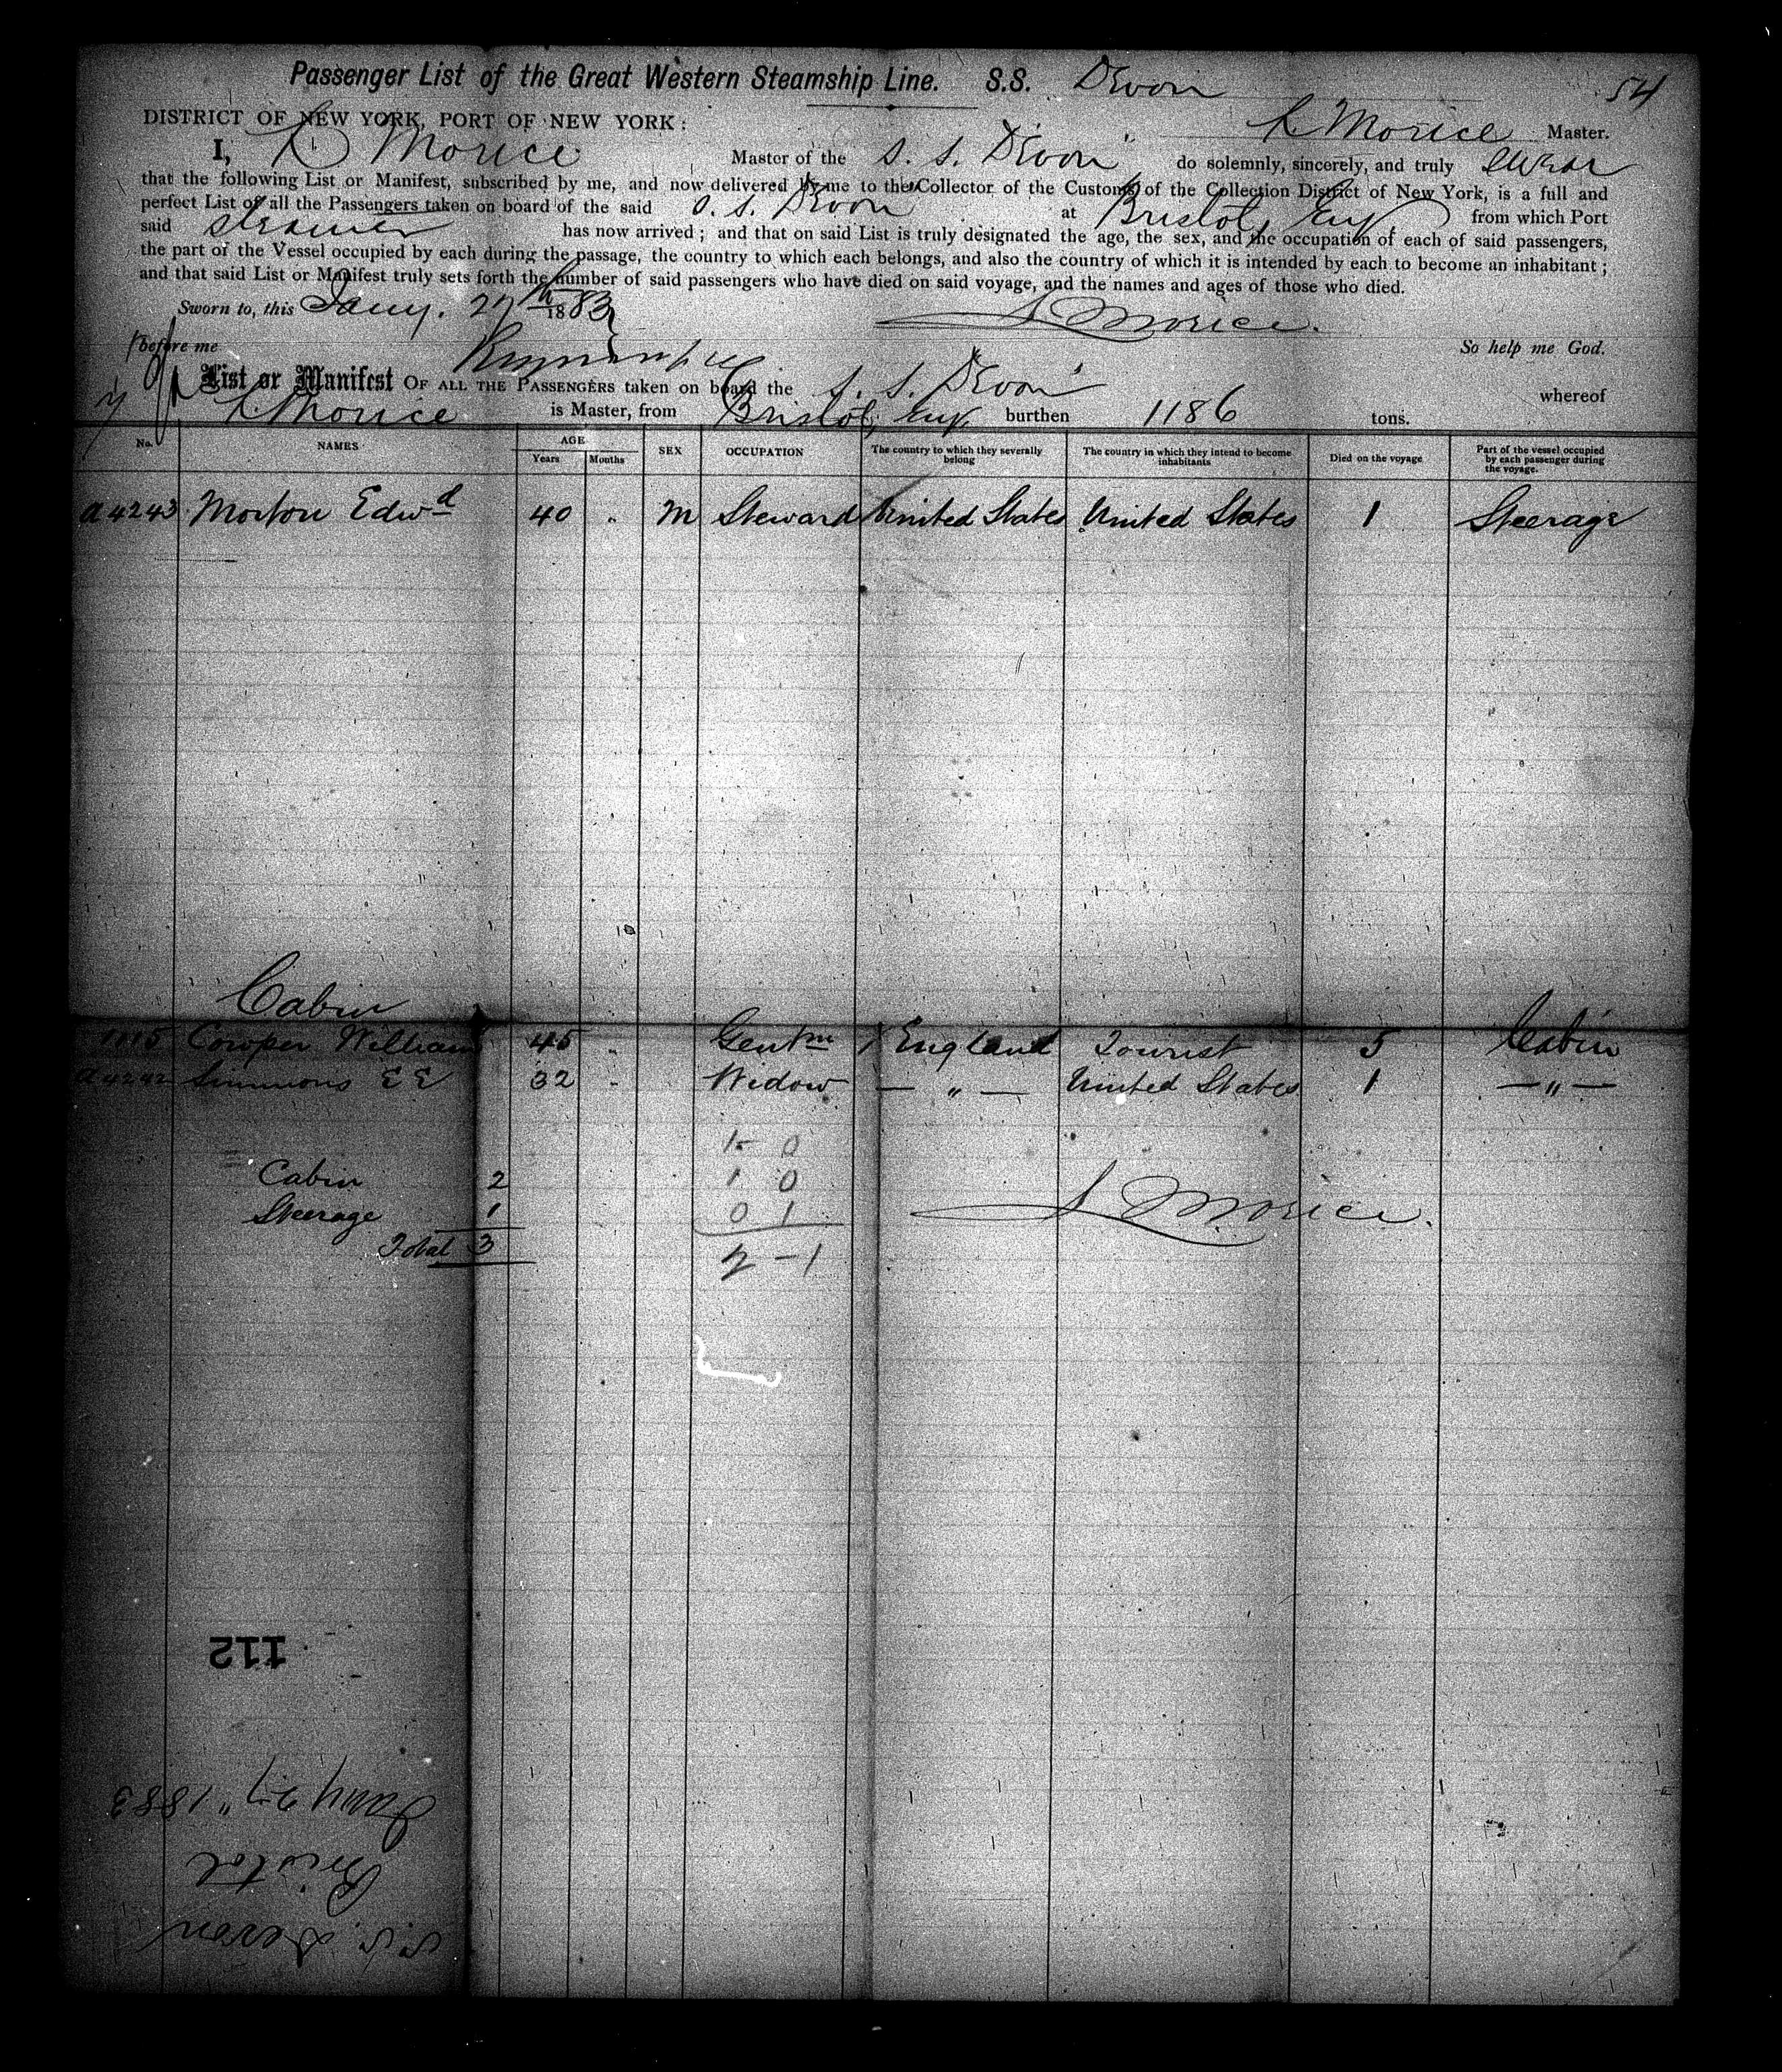 Passenger List of the Great Western Steamship Line. S.S. Devon 54
DISTRICT OF NEW YORK, PORT OF NEW YORK: L Morice Master.
I, L Morice Master of the S. S. "Devon" do solemnly, sincerely, and truly swear
that the following List or Manifest, subscribed by me, and now delivered by me to the Collector of the Customs of the Collection District of New York, is a full and
perfect List of all the Passengers taken on board of the said S. S. Devon at Bristol, Eng from which Port
said steamer has now arrived; and that on said List is truly designated the age, the sex, and the occupation of each of said passengers,
the part of the Vessel occupied by each during the passage, the country to which each belongs, and also the country of which it is intended by each to become an inhabitant;
and that said List or Manifest truly sets forth the number of said passengers who have died on said voyage, and the names and ages of those who died.
Sworn to, this Jany. 27th 1883 L Morice.
before me So help me God.
List or Manifest OF ALL THE PASSENGERS taken on board the S. S. "Devon" whereof
L Morice is Master, from Bristol, Eng. burthen 1186 tons.
No. NAMES AGE Years Months SEX OCCUPATION The country to which they severally belong The country in which they intend to become inhabitants Died on the voyage Part of the vessel occupied by each passenger during the voyage.
a4243 Morton Edwd 40 " M Steward United States United States 1 Steerage
Cabin
1115 Cowper William 45 " Gentm England Tourist 5 Cabin
a4242 Simmons E E 32 " Widow — " — United States 1 — " —
1- 0
Cabin 2 1 0
Steerage 1 0 1 L Morice.
Total 3 2 - 1
112
Jany 27" 1883
Bristol
S.S. Devon